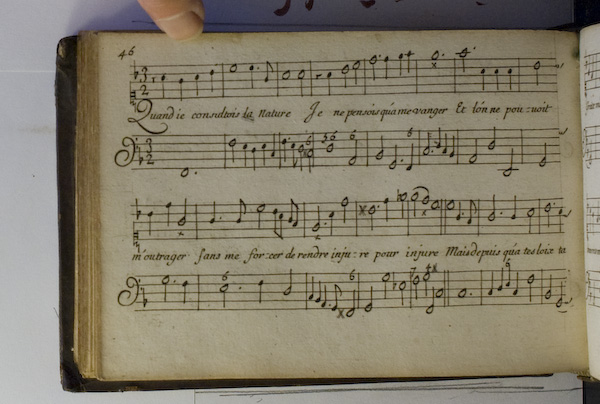 46
Quand ie consultois la Nature Je ne pensois qu'a me vanger Et lón ne pou-uoit
m'outrager sans me for-cer de rendre inju-re pour injure Mais depuis qu'a tes loix ta